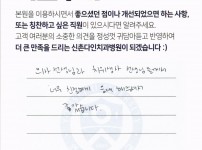 본원을 이용하시면서 좋으셨던 점이나 개선되었으면 하는 사항,
또는 칭찬하고 싶은 직원이 있으시다면 알려주세요.
고객 여러분의 소중한 의견을 정성껏 귀담아듣고 반영하여
더 큰 만족을 드리는 신촌다인치과병원이 되겠습니다 :)
의사 선생님과 치위생사 선생님들께서
너무 친절하게 잘 해주셔서
좋았습니다